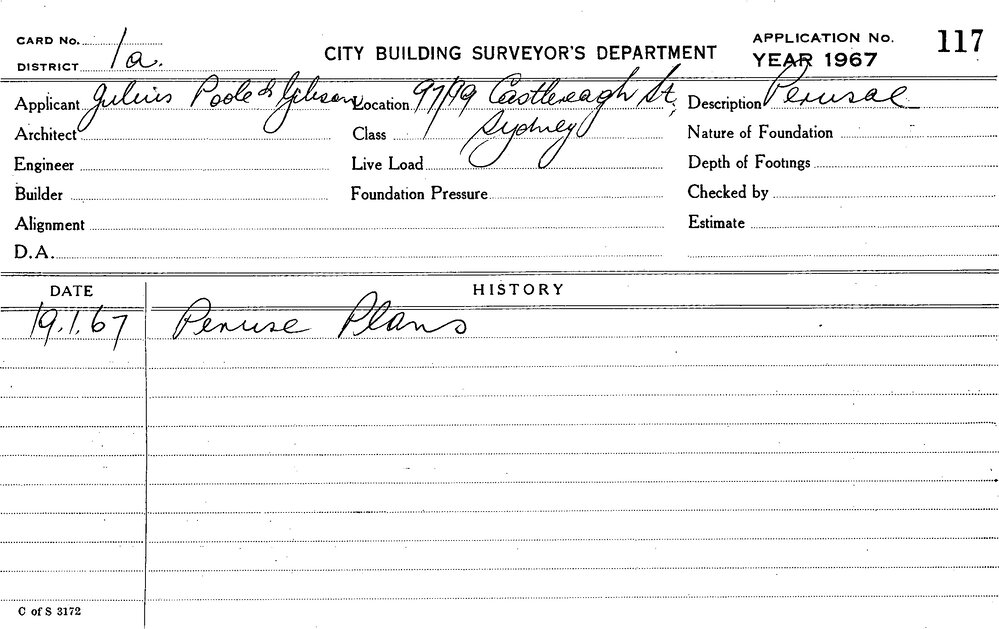 CARD No. 1a.
DISTRICT
CITY BUILDING SURVEYOR'S DEPARTMENT
APPLICATION No. 117
YEAR 1967
Applicant Julius Poole & Gibson Location 97/99 Castlereagh St, Sydney Description Perusal
Architect Class Nature of Foundation
Engineer Live Load Depth of Footings
Builder Foundation Pressure Checked by
Alignment Estimate
D.A.
DATE HISTORY
19.1.67 Peruse Plans
C of S 3172